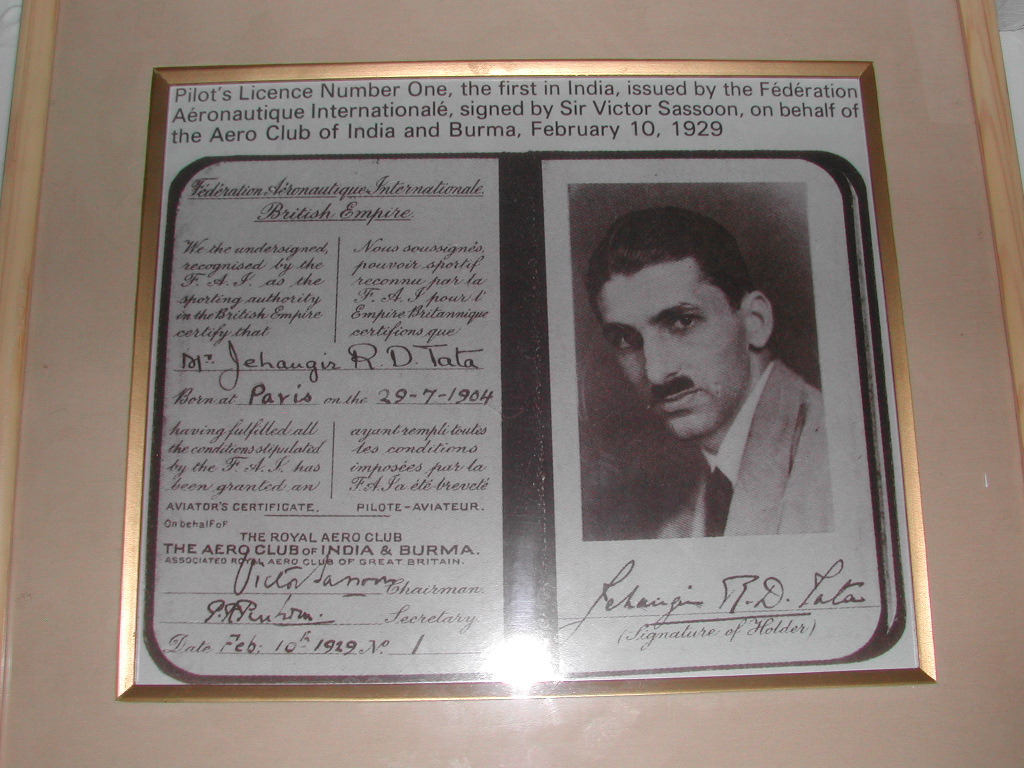 Pilot's Licence Number One, the first in India, issued by the Fédération
Aéronautique Internationalé, signed by Sir Victor Sassoon, on behalf of
the Aero Club of India and Burma, February 10, 1929
Fédération Aéronautique Internationale.
British Empire.
We the undersigned,
recognised by the
F. A. I. as the
sporting authority
in the British Empire
certify that
Nous soussignés,
pouvoir sportif
reconnu par la
F. A. I pour l'
Empire Britannique
certifions que
Mr. Jehangir R. D. Tata
Born at Paris on the 29-7-1904
having fulfilled all
the conditions stipulated
by the F. A. I. has
been granted an
AVIATOR'S CERTIFICATE.
ayant rempli toutes
les conditions
imposées par la
F.A.I a été breveté
PILOTE-AVIATEUR.
On behalf of
THE ROYAL AERO CLUB
THE AERO CLUB OF INDIA & BURMA.
ASSOCIATED ROYAL AERO CLUB OF GREAT BRITAIN.
Victor Sassoon Chairman.
Secretary.
Date Feb: 10th 1929 No. 1
Jehangir R. D. Tata
(Signature of Holder)